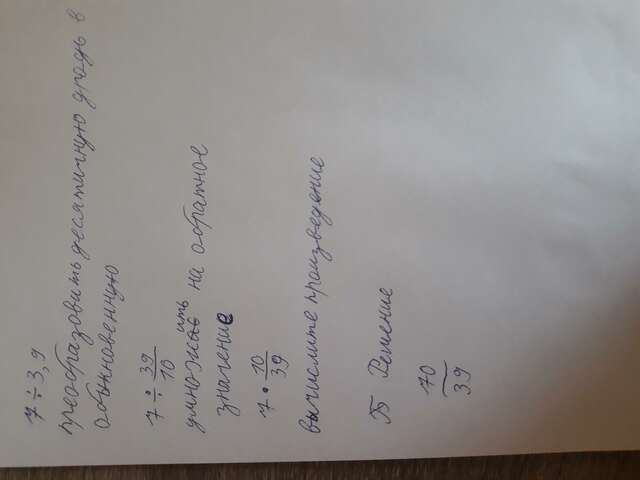 7 ÷ 3,9
преобразовить десятичную дробь в
обыкновенную
7 ÷ 39/10
умножить на обратное
значение
7 • 10/39
вычислите произведение
Решение
70/39